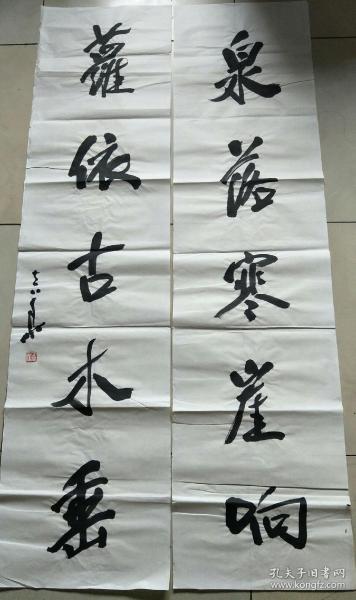 泉落寒崖响
蘿依古木垂
孔夫子旧书网
www.kongfz.com